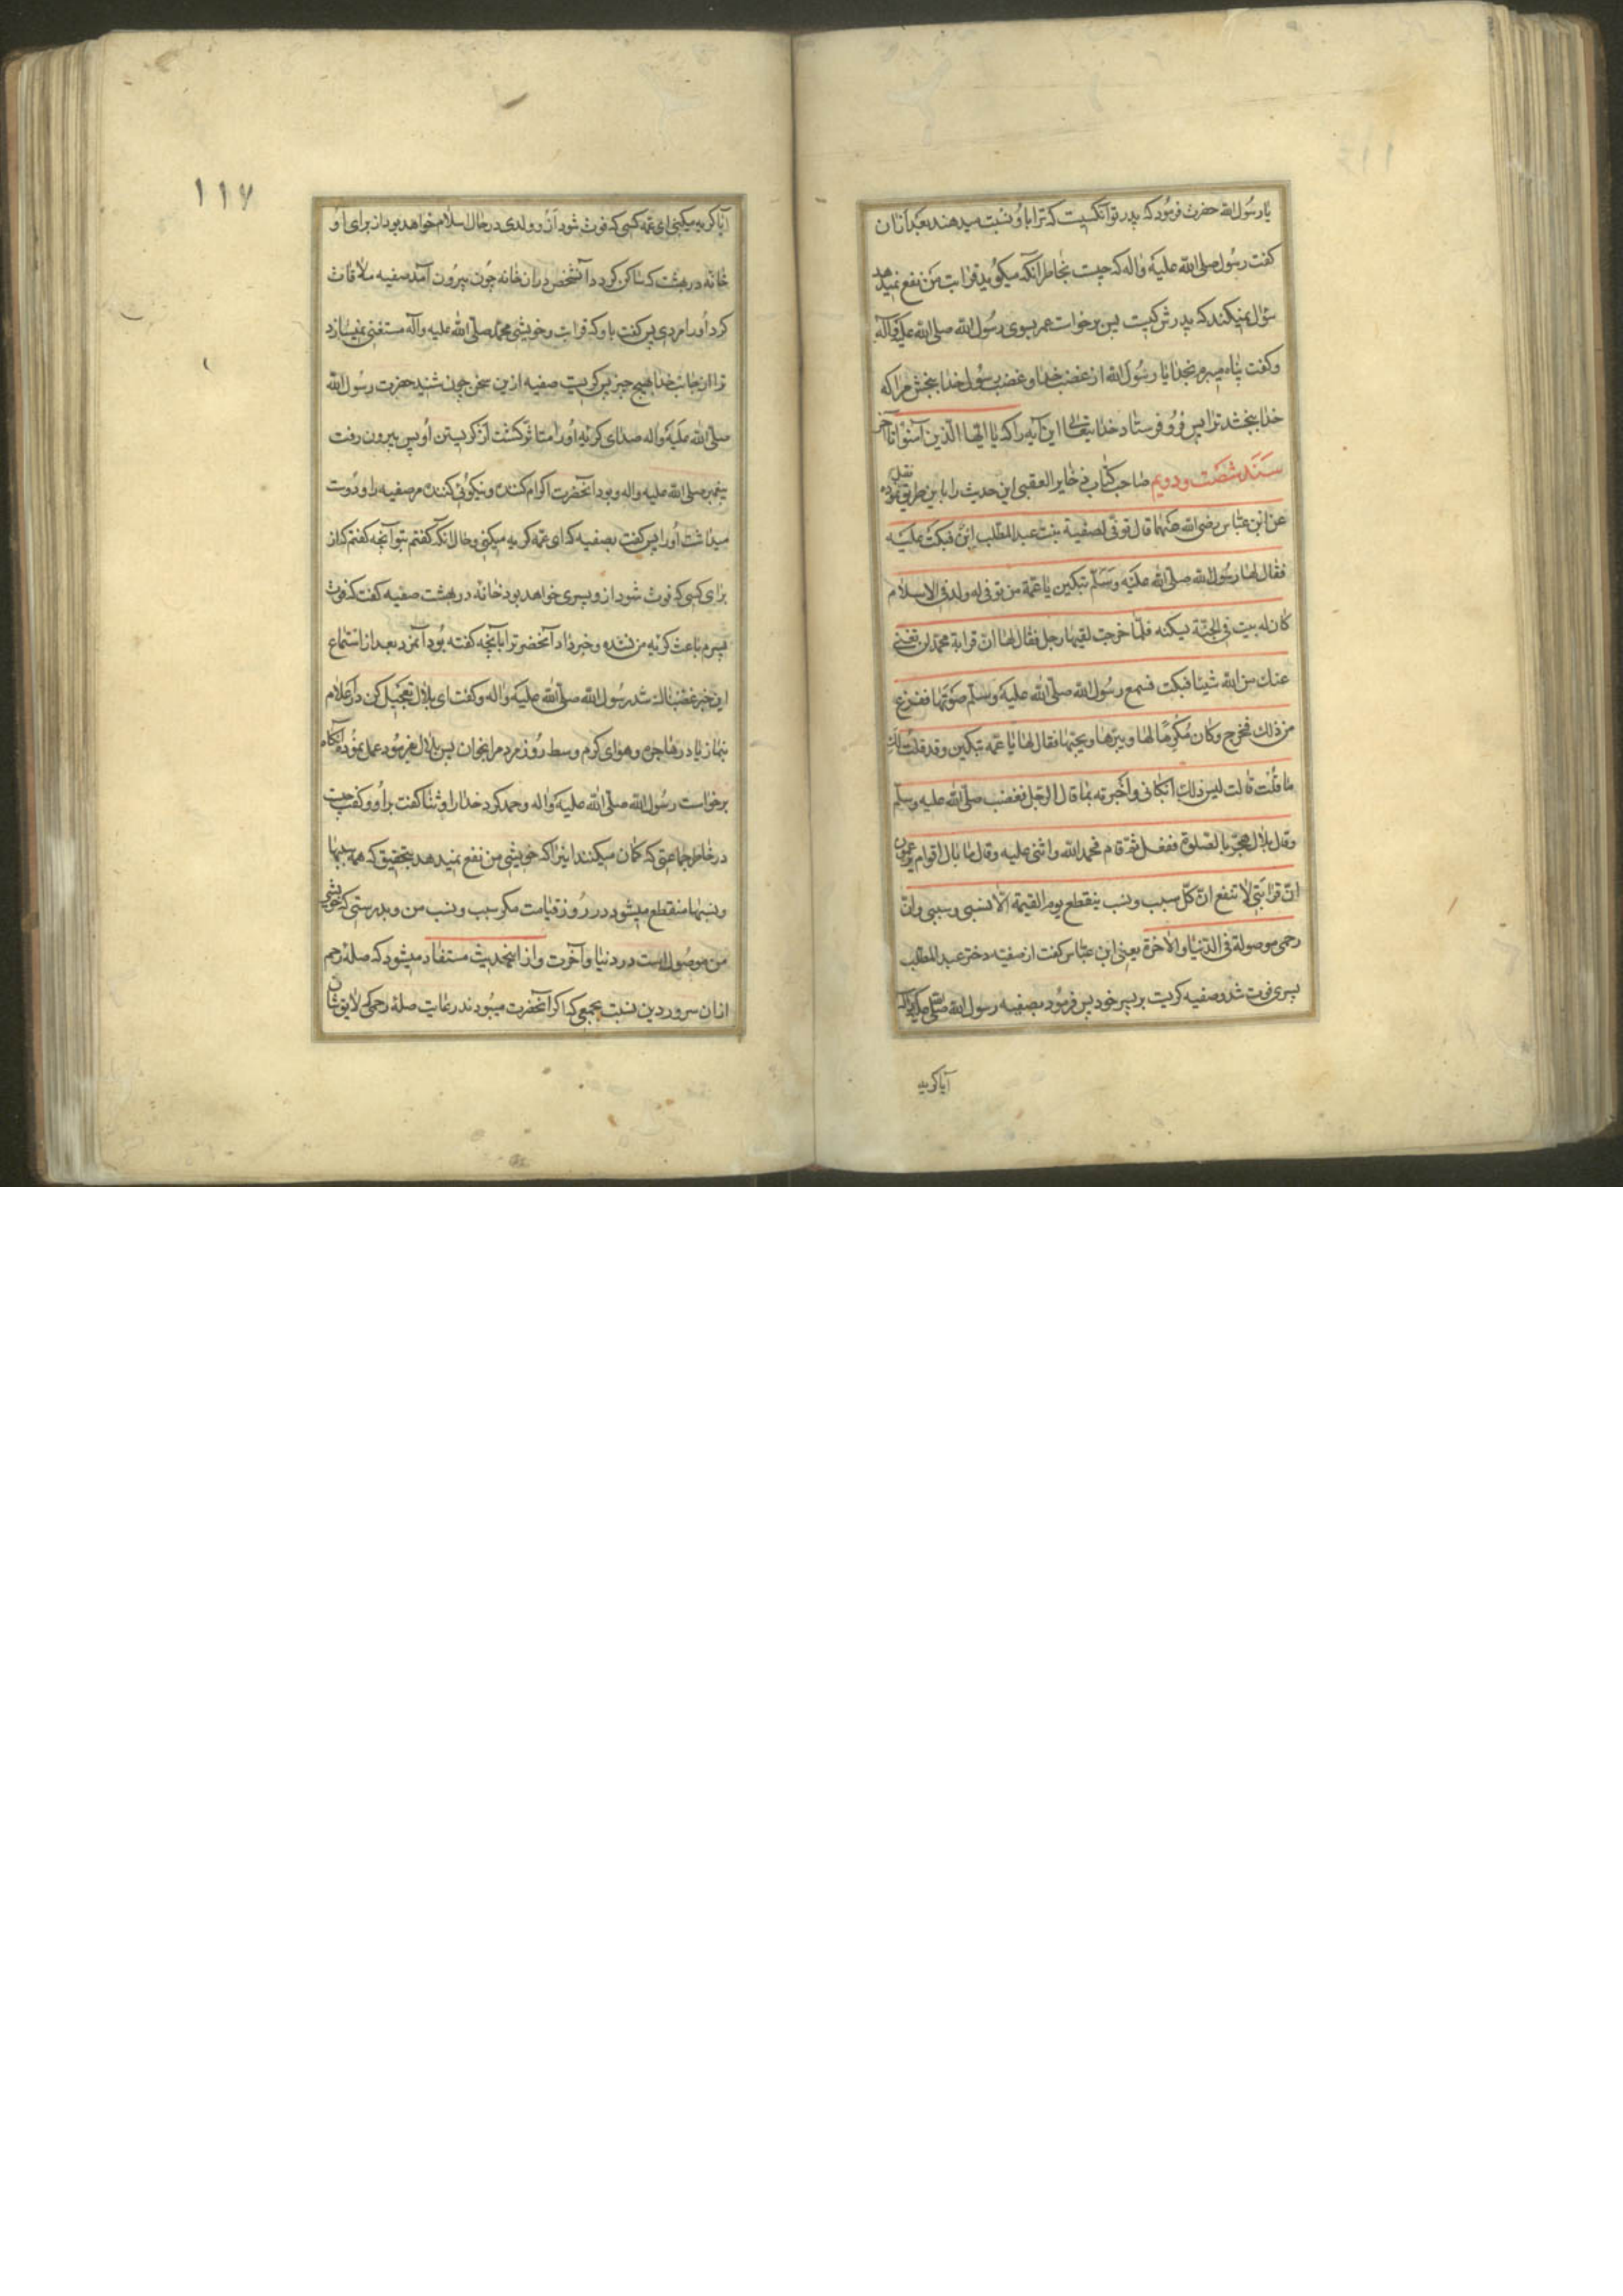 یا رسول الله حضرت فرمود که پدر تو آنکسیت که ترا باو نسبت میدهند بعد ازان
کفت رسول صلی الله علیه واله که چیت بخاطر آنکه میکویید قرابت من نفع نمیدهد
سؤال نمیکنند که پدرش کیت پس برخواست عمر بسوی رسول الله صلی الله علیه وآله
وکفت پناه میبرم بخدا یا رسول الله از غضب خدا و غضب رسول خدا ببخش مرا که
خدا ببخشد ترا پس فرو فرستاد خدایتعالی این آیه را که یا ایها الذین آمنوا تا آخر
سند شصت ودویم صاحب کتاب ذخایر العقبی این حدیث را باین طریق نقل نموده
عن ابن عباس رضی الله عنهما قال توفی لصفیة بنت عبد المطلب ابن فبکت علیه
فقال لها رسول الله صلی الله علیه وسلم تبکین یا عمة من توفی له ولد فی الاسلام
کان له بیت فی الجنة یسکنه فلما خرجت لقیها رجل فقال لها ان قرابة محمد لن تغنی
عنك من الله شیئا فبکت فسمع رسول الله صلی الله علیه وسلم صوتها ففزع
من ذلك فخرج وکان مکرما لها ویبرها ویحبها فقال لها یا عمه تبکین وقد قلت لك
ما قلت قالت لیس ذلك ابکانی واخبرته بما قال الرجل فغضب صلی الله علیه وسلم
وقال یا بلال هجر بالصلوة ففعل ثم قام فحمد الله واثنی علیه وقال ما بال اقوام یزعمون
ان قرابتی لا تنفع ان کل سبب ونسب ینقطع یوم القیمة الا نسبی وسببی وان
رحمی موصولة فی الدنیا والاخرة یعنی ابن عباس کفت از صفیه دختر عبد المطلب
پسری فوت شد وصفیه کریت بر پسر خود پس فرمود بصفیه رسول الله صلی الله علیه واله
آیا کریه
۱۱۷
آیا کریه میکنی ای عمه کسی که فوت شود از و ولدی در حال اسلام خواهد بود از برای او
خانه در بهشت که ساکن کردد آنشخص دران خانه چون بیرون آمد صفیه ملاقات
کرد اورا مردی پس کفت باو که قرابت وخویشی محمد صلی الله علیه وآله مستغنی نمیسازد
ترا از جانب خدا هیچ چیز پس کریت صفیه ازین سخن چون شنید حضرت رسول الله
صلی الله علیه واله صدای کریه اورا متاثر کشت از کریستن او پس بیرون رفت
پیغمبر صلی الله علیه واله وبود آنحضرت اکرام کننده ونیکوئی کننده مر صفیه را ودوست
میداشت اورا پس کفت بصفیه که ای عمه کریه میکنی وحال انکه کفتم بتو آنچه کفتم که از
برای کسی که فوت شود از و پسری خواهد بود خانه در بهشت صفیه کفت که فوت
پسرم باعث کریه من نشده وخبر داد آنحضرترا بآنچه کفته بود آنمرد بعد از استماع
این خبر غضبناك شد رسول الله صلی الله علیه واله وکفت ای بلال تعجیل کن در اعلام
بنماز یا در هاجره وهوای کرم وسط روز مردم را بخوان پس بلال بفرموده عمل نمود آنکاه
برخواست رسول الله صلی الله علیه واله وحمد کرد خدا را وثنا کفت براو وکفت چیت
در خاطر جماعتی که کمان میکنند اینرا که خویشی من نفع نمیدهد بتحقیق که همه سببها
ونسبها منقطع میشود در روز قیامت مکر سبب ونسب من وبدرستی که خویشی
من موصول است در دنیا وآخرت واز اینحدیث مستفاد میشود که صلهٔ رحم
ازان سرور دین نسبت بجمعی که اکر آنحضرت میبودند رعایت صلهٔ رحمی که لایق شان